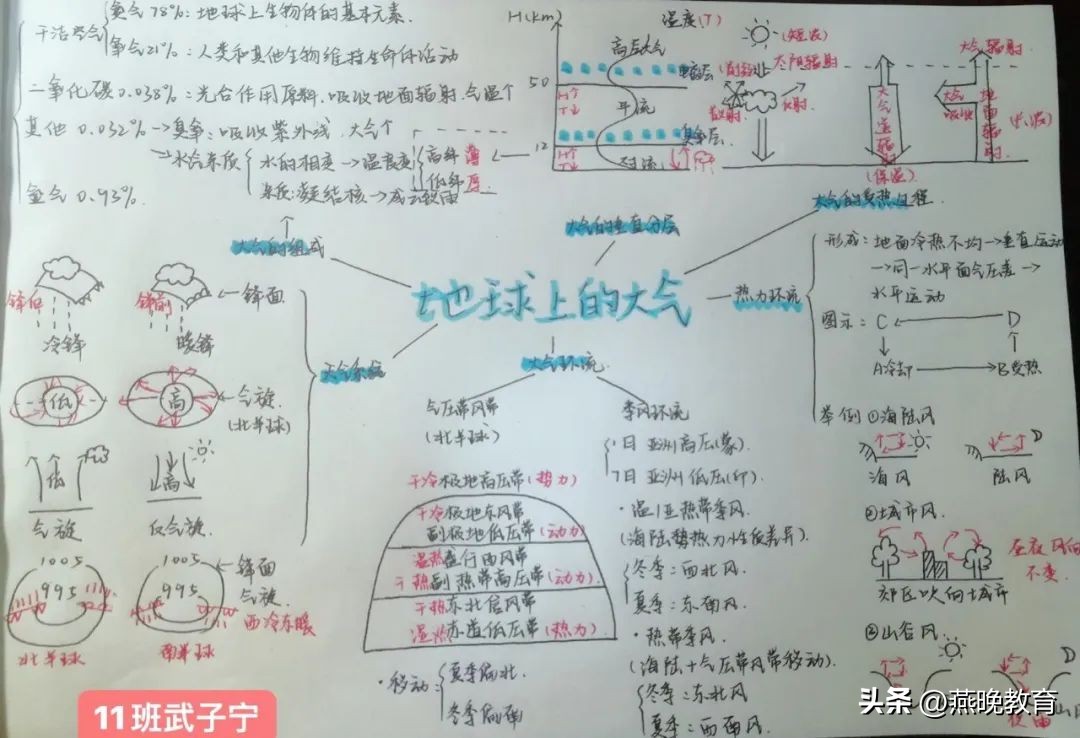 地球上的大气
大气的组成
干洁空气
氮气78%：地球上生物体的基本元素.
氧气21%：人类和其他生物维持生命体活动
二氧化碳0.038%：光合作用原料.吸收地面辐射.气温个
其他 0.032%→臭氧：吸收紫外线.大气个
→水汽杂质
水的相变→温良度
高纬 薄
低纬 厚
杂质：凝结核→成云致雨
氩气 0.93%.
大气的垂直分层
H(km)
温度(T)
50
12
高层大气
电离层
H↑
T↓
平流
臭氧层
H↑
T↓
对流
大气的受热过程
(短波)
太阳辐射
(削弱)
散射.
反射.
大气逆辐射
(保温)
大气辐射
大气吸收
地面辐射
(长波)
热力环流
形成：地面冷热不均→垂直运动
→同一水平面气压差→
水平运动
图示：C
D
A冷却
B受热
举例①海陆风
海风
陆风
②城市风.
昼夜风向不变.
郊区吹向城市
③山谷风.
天气系统
锋后
锋前
锋面
冷锋
暖锋
低
高
气旋
(北半球)
低
高
气旋
反气旋
1005
995
1005
995
锋面
气旋.
西冷东暖
北半球
南半球
大气环流.
气压带风带
(北半球)
干冷极地高压带(热力)
干冷极地东风带
副极地低压带(动力)
温热盛行西风带
干热副热带高压带(动力).
干热东北信风带
湿热赤道低压带(热力)
·移动：
夏季偏北.
冬季偏南
季风环流
1日 亚洲高压(蒙).
7日 亚洲低压(印).
·温/亚热带季风.
(海陆势热力性质差异).
冬季：西北风.
夏季：东南风.
·热带季风.
(海陆+气压带风带移动).
冬季：东北风
夏季：西南风.
11班武子宁
头条 @燕晚教育